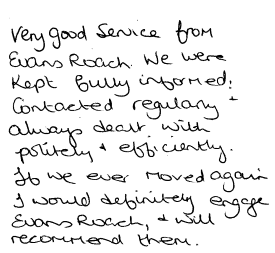 Very good Service from
Evans Roach. We were
Kept fully informed.
Contacted regulary +
always dealt with
politely + efficiently.
If we ever moved again
I would definitely engage
Evans Roach, + will
recommend them.